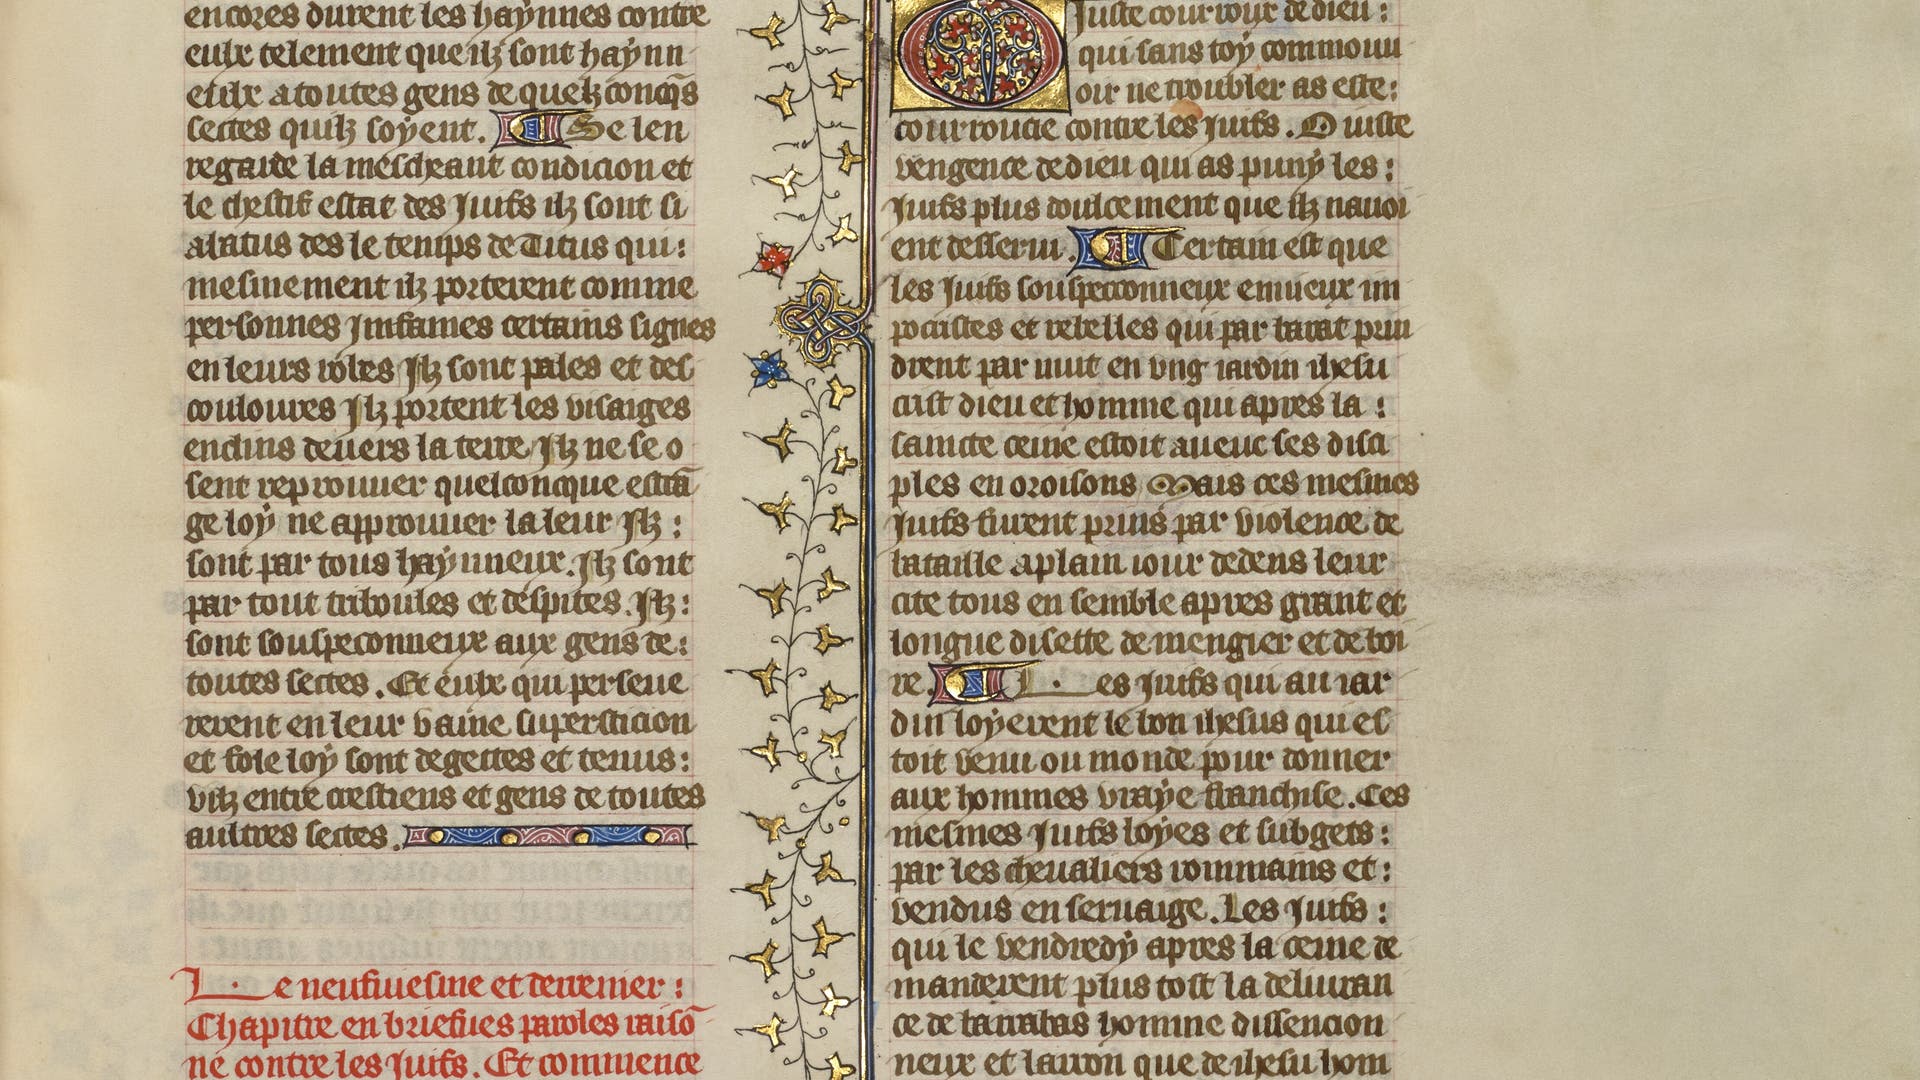 encores durent les haÿnnes contre
eulx telement que ilz sont haÿnn
eulx a toutes gens de quelzconq̄s
sectes quilz soyent. Se len
regarde la mescheant condicion et
le chestif estat des Juifs ilz sont si
alatus des le temps de Titus qui:
mesmement ilz porterent comme
personnes Jnfames certains signes
en leurs robes Jlz sont pales et des
coulources Jlz portent les visaiges
enclins deuers la terre Jlz ne se o
sent reprouuer quelconcque estrā
ge loÿ ne approuuer la leur Jlz:
sont par tous haÿnneux. Jlz sont
par tout triboules et despites. Jlz:
sont souspeconneux aux gens de:
toutes sectes. Et eulx qui perseue
rerent en leur vaine supersticion
et fole loÿ sont degettes et tenus:
vilz entre crestiens et gens de toutes
aultres sectes.
Le neufiuesme et derrenier:
Chapitre en briefues paroles raisō
ne contre les Juifs. Et commence
O Juste courroux de dieu:
qui sans toÿ commouu
oir ne troubler as este:
courroucie contre les Juifs. O iuste
vengence de dieu qui as punÿ les:
Juifs plus doulcement que ilz nauoi
ent desserui. Certain est que
les Juifs souspeconneux enuieux im
pocrites et rebelles qui par barat prin
drent par nuit en vng iardin ihesu
crist dieu et homme qui apres la:
saincte ceine estoit aueuc ses disci
ples en oroisons Mais ces mesmes
Juifs furent prins par violence de
bataille a plain iour dedens leur
cite tous en semble apres grant et
longue disette de mengier et de boi
re. Les Juifs qui au iar
din loÿerent le bon ihesus qui es
toit venu ou monde pour donner
aux hommes vraÿe franchise. Ces
mesmes Juifs loyes et subgets:
par les cheualiers rommains et:
vendus en seruaige. Les Juifs:
qui le vendredÿ apres la ceine de
manderent plus tost la deliuran
ce de barrabas homme dissencion
neux et larron que de ihesu hom